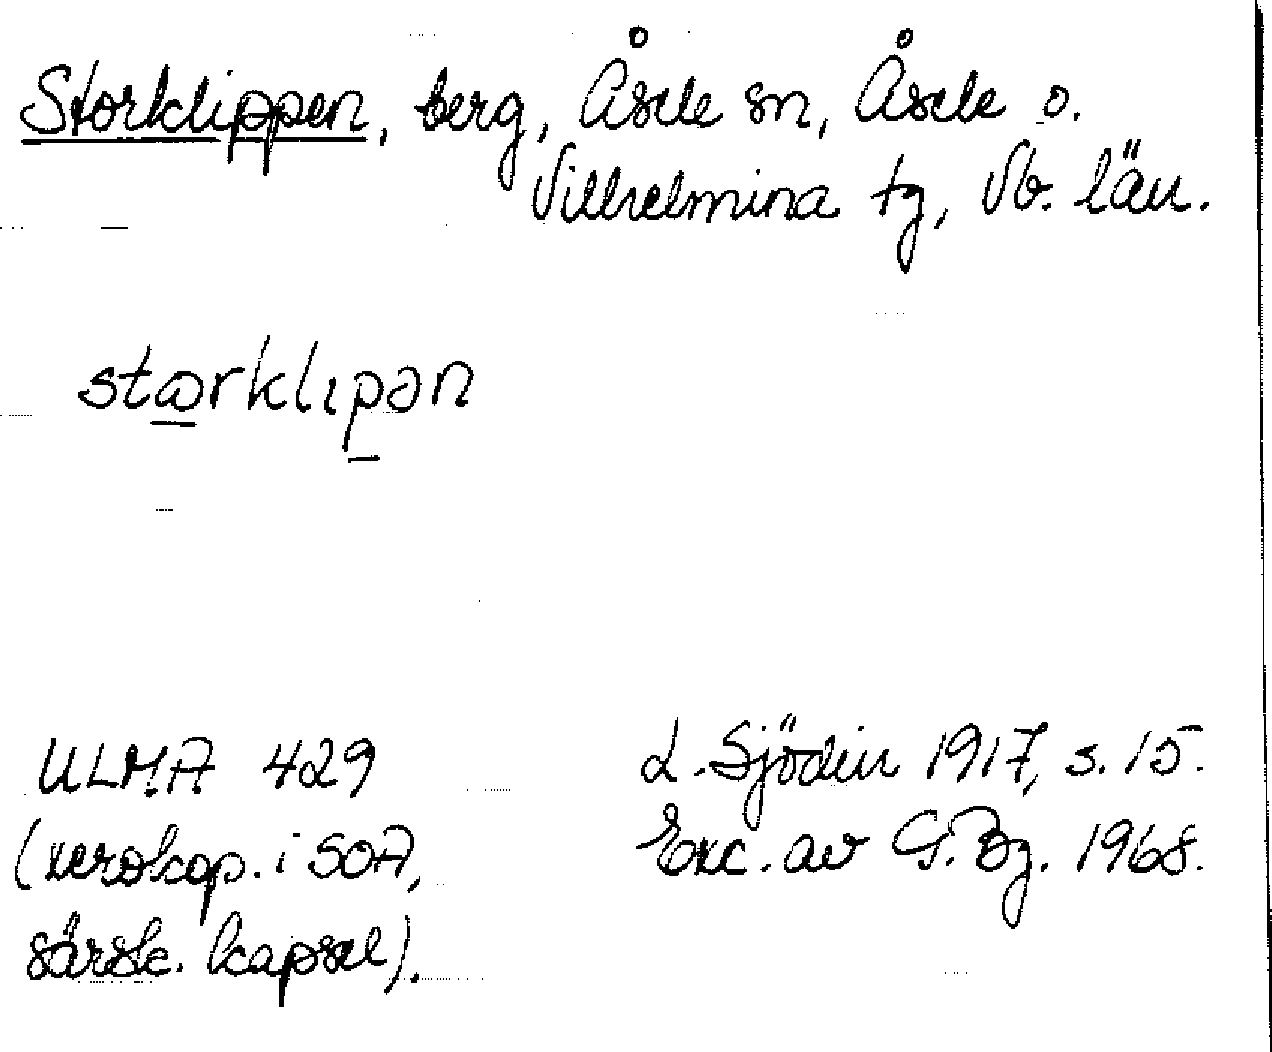 Storklippen, berg, Åsele sn, Åsele o.
Vilhelmina tg, Vb. län.
stærklıpən
ULMA 429
(xerokop. i SOA,
särsk. kapsel).
L. Sjödin 1917, s. 15.
Exc. av G. Bg. 1968.